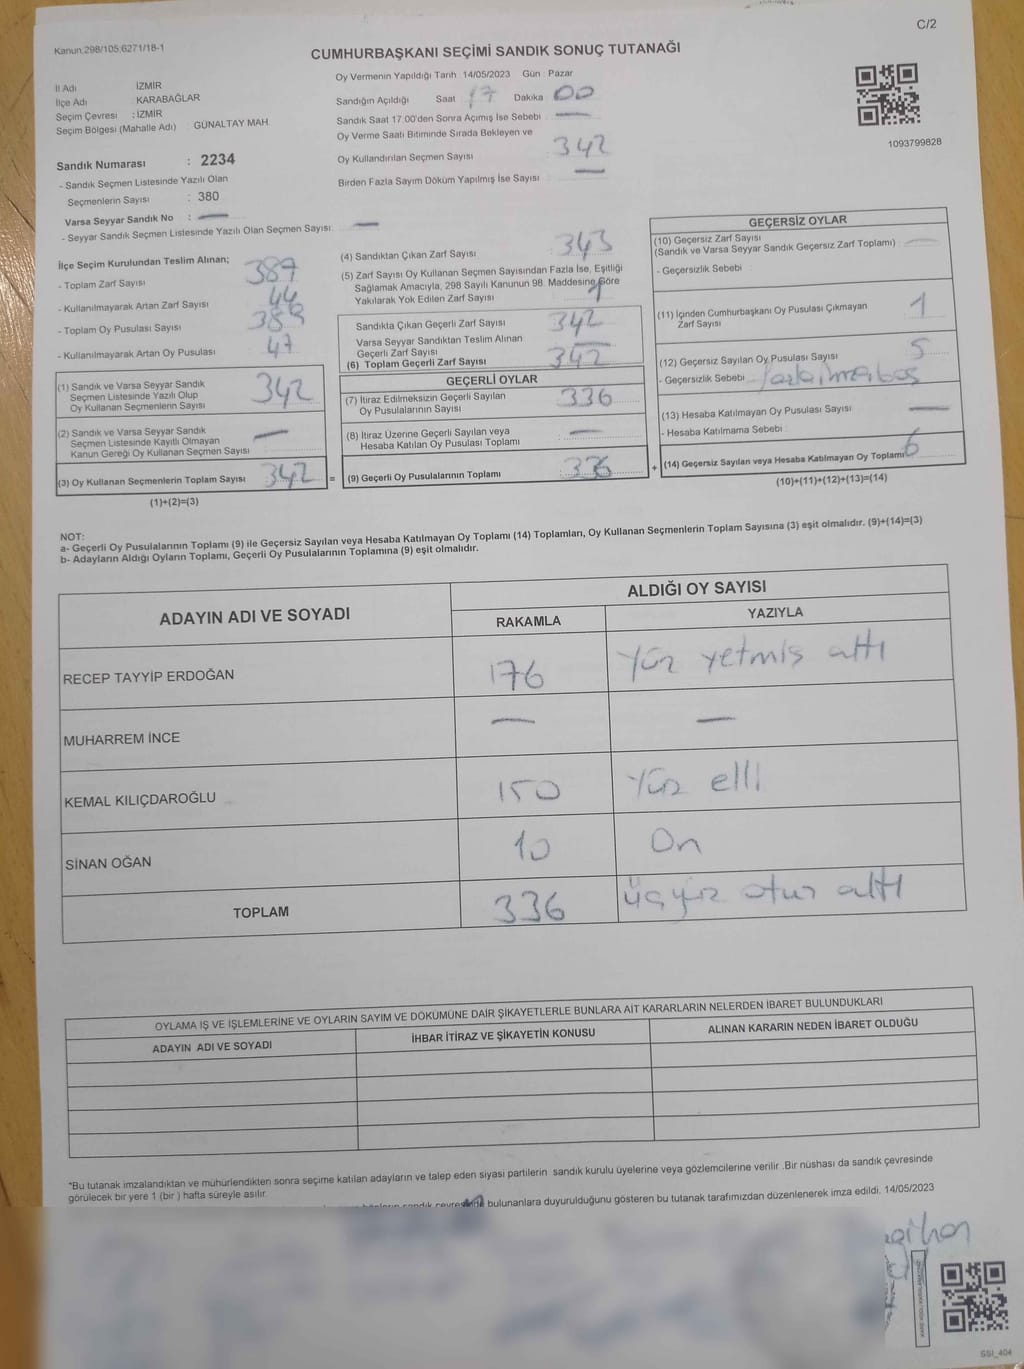 C/2
Kanun:298/105,6271/18-1
CUMHURBAŞKANI SEÇİMİ SANDIK SONUÇ TUTANAĞI
İl Adı : İZMİR
İlçe Adı : KARABAĞLAR
Seçim Çevresi : İZMİR
Seçim Bölgesi (Mahalle Adı) : GÜNALTAY MAH.
Sandık Numarası : 2234
- Sandık Seçmen Listesinde Yazılı Olan
Seçmenlerin Sayısı : 380
Varsa Seyyar Sandık No : —
- Seyyar Sandık Seçmen Listesinde Yazılı Olan Seçmen Sayısı: —
Oy Vermenin Yapıldığı Tarih 14/05/2023 Gün : Pazar
Sandığın Açıldığı Saat 17 Dakika 00
Sandık Saat 17.00'den Sonra Açımış İse Sebebi —
Oy Verme Saati Bitiminde Sırada Bekleyen ve
Oy Kullandırılan Seçmen Sayısı 342
Birden Fazla Sayım Döküm Yapılmış İse Sayısı —
1093799828
İlçe Seçim Kurulundan Teslim Alınan;
- Toplam Zarf Sayısı 387
- Kullanılmayarak Artan Zarf Sayısı 44
- Toplam Oy Pusulası Sayısı 389
- Kullanılmayarak Artan Oy Pusulası 47
(1) Sandık ve Varsa Seyyar Sandık
Seçmen Listesinde Yazılı Olup
Oy Kullanan Seçmenlerin Sayısı 342
(2) Sandık ve Varsa Seyyar Sandık
Seçmen Listesinde Kayıtlı Olmayan
Kanun Gereği Oy Kullanan Seçmen Sayısı —
(3) Oy Kullanan Seçmenlerin Toplam Sayısı 342
(1)+(2)=(3)
(4) Sandıktan Çıkan Zarf Sayısı 343
(5) Zarf Sayısı Oy Kullanan Seçmen Sayısından Fazla İse, Eşitliği
Sağlamak Amacıyla, 298 Sayılı Kanunun 98. Maddesine Göre
Yakılarak Yok Edilen Zarf Sayısı 1
Sandıkta Çıkan Geçerli Zarf Sayısı 342
Varsa Seyyar Sandıktan Teslim Alınan
Geçerli Zarf Sayısı —
(6) Toplam Geçerli Zarf Sayısı 342
GEÇERLİ OYLAR
(7) İtiraz Edilmeksizin Geçerli Sayılan
Oy Pusulalarının Sayısı 336
(8) İtiraz Üzerine Geçerli Sayılan veya
Hesaba Katılan Oy Pusulası Toplamı —
= (9) Geçerli Oy Pusulalarının Toplamı 336
GEÇERSİZ OYLAR
(10) Geçersiz Zarf Sayısı
(Sandık ve Varsa Seyyar Sandık Geçersiz Zarf Toplamı) —
- Geçersizlik Sebebi :
(11) İçinden Cumhurbaşkanı Oy Pusulası Çıkmayan
Zarf Sayısı 1
(12) Geçersiz Sayılan Oy Pusulası Sayısı 5
- Geçersizlik Sebebi :
(13) Hesaba Katılmayan Oy Pusulası Sayısı —
- Hesaba Katılmama Sebebi :
+ (14) Geçersiz Sayılan veya Hesaba Katılmayan Oy Toplamı 6
(10)+(11)+(12)+(13)=(14)
NOT:
a- Geçerli Oy Pusulalarının Toplamı (9) ile Geçersiz Sayılan veya Hesaba Katılmayan Oy Toplamı (14) Toplamları, Oy Kullanan Seçmenlerin Toplam Sayısına (3) eşit olmalıdır. (9)+(14)=(3)
b- Adayların Aldığı Oyların Toplamı, Geçerli Oy Pusulalarının Toplamına (9) eşit olmalıdır.
ADAYIN ADI VE SOYADI ALDIĞI OY SAYISI
RAKAMLA YAZIYLA
RECEP TAYYİP ERDOĞAN 176 Yüz yetmiş altı
MUHARREM İNCE — —
KEMAL KILIÇDAROĞLU 150 Yüz elli
SİNAN OĞAN 10 On
TOPLAM 336 üçyüz otuz altı
OYLAMA İŞ VE İŞLEMLERİNE VE OYLARIN SAYIM VE DÖKÜMÜNE DAİR ŞİKAYETLERLE BUNLARA AİT KARARLARIN NELERDEN İBARET BULUNDUKLARI
ADAYIN ADI VE SOYADI İHBAR İTİRAZ VE ŞİKAYETİN KONUSU ALINAN KARARIN NEDEN İBARET OLDUĞU
*Bu tutanak imzalandıktan ve mühürlendikten sonra seçime katılan adayların ve talep eden siyasi partilerin sandık kurulu üyelerine veya gözlemcilerine verilir .Bir nüshası da sandık çevresinde
görülecek bir yere 1 (bir ) hafta süreyle asılır.
bulunanlara duyurulduğunu gösteren bu tutanak tarafımızdan düzenlenerek imza edildi. 14/05/2023
SSI_404